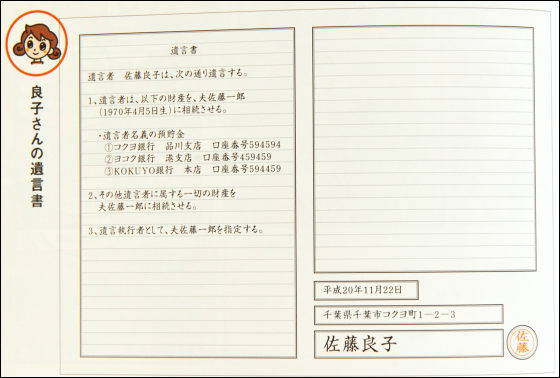 良子さんの遺言書
遺言書
遺言者 佐藤良子は、次の通り遺言する。
1、遺言者は、以下の財産を、夫佐藤一郎
(1970年4月5日生)に相続させる。
・遺言者名義の預貯金
①コクヨ銀行 品川支店 口座番号594594
②ヨコク銀行 港支店 口座番号459459
③KOKUYO銀行 本店 口座番号594459
2、その他遺言者に属する一切の財産を
夫佐藤一郎に相続させる。
3、遺言執行者として、夫佐藤一郎を指定する。
平成20年11月22日
千葉県千葉市コクヨ町1－2－3
佐藤良子
佐藤